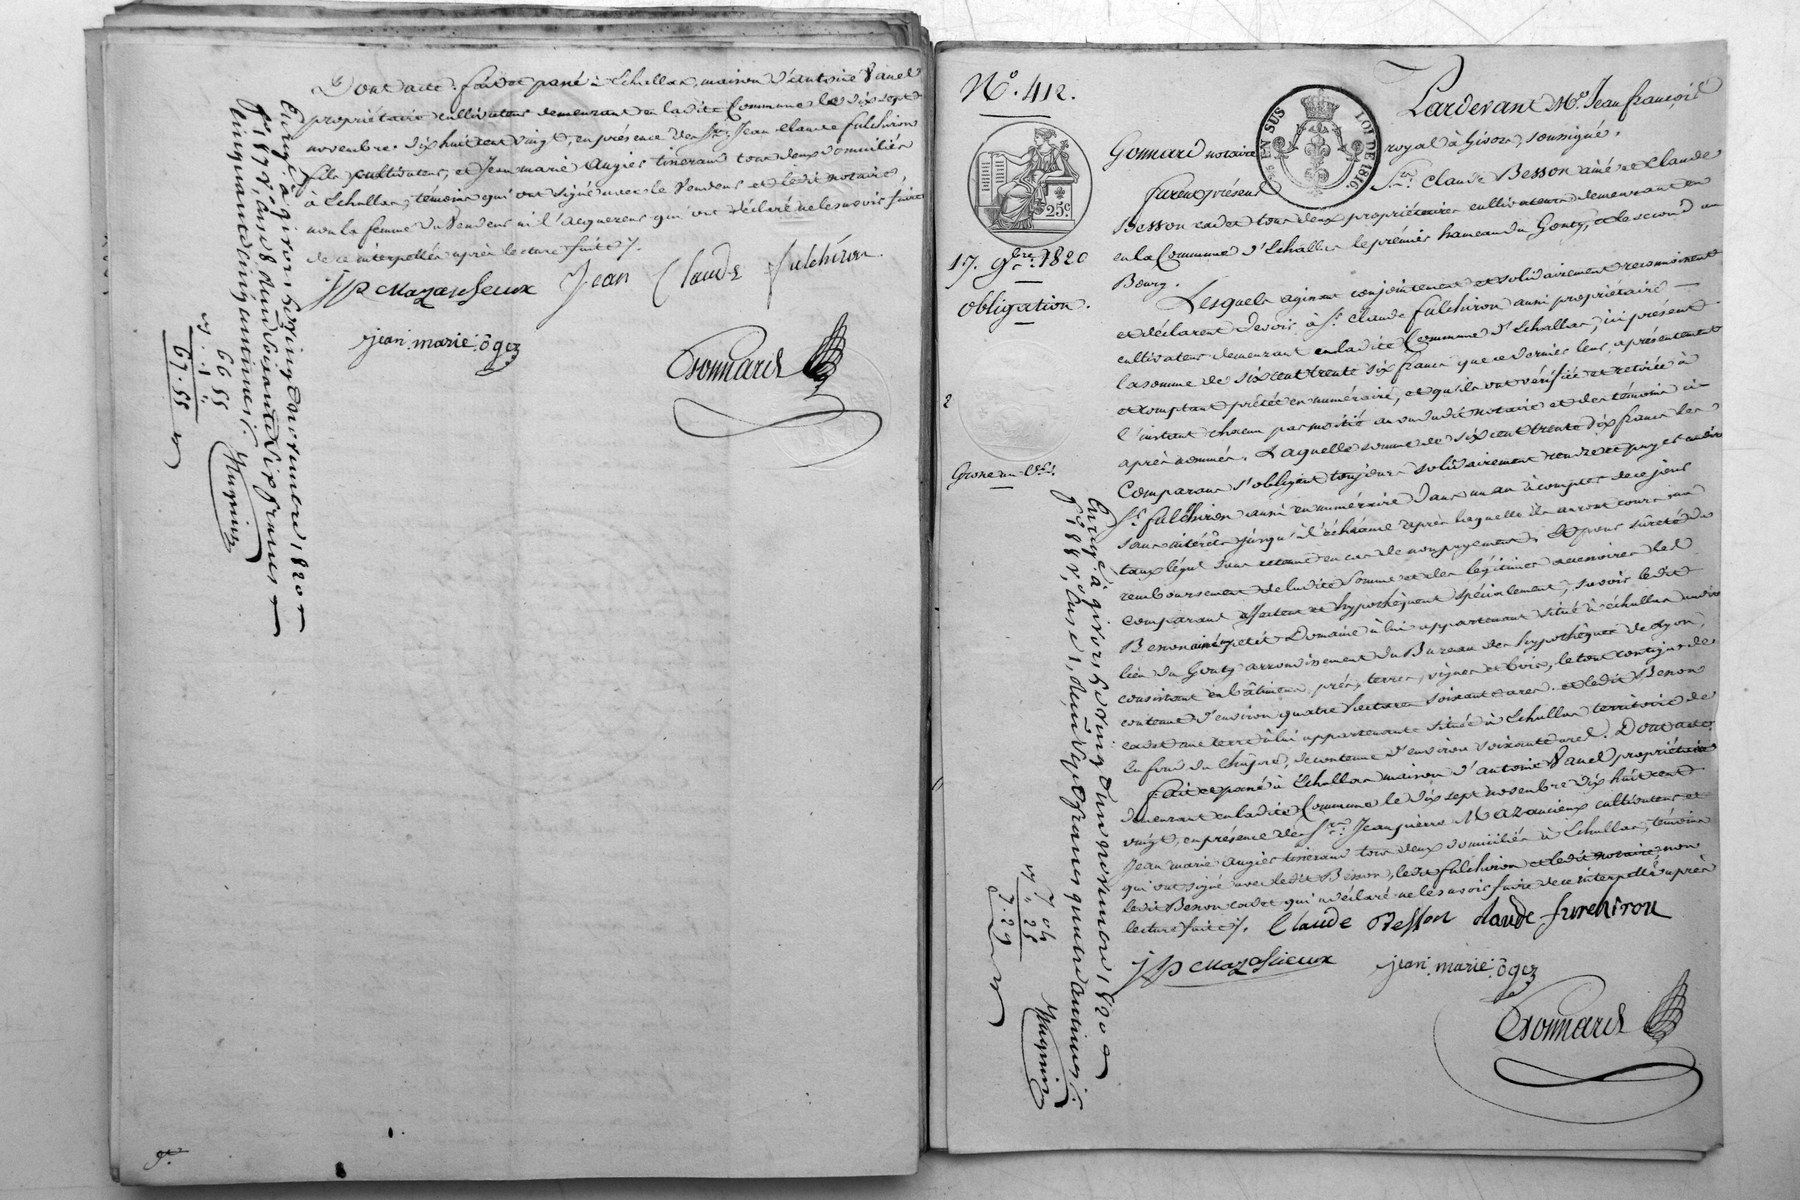 Dont acte. fait et passé à Echallas, maison d'antoine Vanel
propriétaire cultivateur demeurant en ladite Commune le dix sept
novembre dix huit cent vingt, en présence des Srs. Jean Claude fulchiron
fils cultivateur, et Jean marie Augier tisserand tous deux domiciliés
à Echallas, témoins qui ont signé avec le Vendeur et ledit notaire,
non la femme du Vendeur ni l'acquereur qui ont déclaré ne le savoir faire
de ce interpellés après lecture faite /.
JP Mazansieux Jean Claude fulchiron
jean marie ôgez
Gonnard
Enregé. à givors le vingt un novembre 1820
fo. 187 vo. case 8 reçu soixante six francs
cinquante cinq centimes.
66 55
67. 55
Mugnier
No. 412.
EN SUS LOI DE 1816.
25c
17. 9bre. 1820
obligation.
Grosse un
Pardevant Me. Jean françois
Gonnard notaire royal à Givors, soussigné.
furent présens Srs. Claude Besson ainé et Claude
Besson cadet tous deux propriétaires cultivateurs demeurant en
en la Commune d'Echallas le premier hameau du Gonty, et le second au
Bourg.
Lesquels agissant conjointement et solidairement reconnoissent
et déclarent devoir à Sr. Claude fulchiron aussi propriétaire
cultivateur demeurant en ladite Commune d'Echallas, ici présent
la somme de six cent trente six francs que ce dernier leur a présentement
et comptant prêtée en numéraire, et qu'ils ont vérifiée et retirée à
l'instant chacun par moitié au vu dudit notaire et des témoins ci-
après nommés. Laquelle somme de six cent trente six francs les
Comparans s'obligent toujours solidairement rendre et payer audit
Sr. fulchiron aussi en numéraire dans un an à compter de ce jour
sans intérêts jusqu'à l'échéance après laquelle ils auront cours au
taux légal sans retenue en cas de non payement. Et pour sûreté du
remboursement de ladite somme et des légitimes accessoires les
Comparans affectent et hypothèquent spécialement, savoir ledit
Besson ainé, un petit Domaine à lui appartenant situé à échallas
lieu du Gonty arrondissement du Bureau des hypothèques de Lyon,
consistant en bâtimens, prés, terres, vignes et bois, le tout contigu de
contenue d'environ quatre hectares soixante ares. et ledit Besson
cadet une terre à lui appartenante située à Echallas territoire de
de contenue d'environ soixante ares. Dont acte.
fait et passé à Echallas maison d'antoine Vanel propriétaire
demeurant en ladite Commune le dix sept novembre dix huit cent
vingt, en présence des Srs. Jean pierre Mazancieux cultivateur et
Jean marie augier tisserand tous deux domiciliés à Echallas, témoins
qui ont signé avec ledit Besson, ledit fulchiron et ledit notaire non
ledit Besson cadet qui a déclaré ne le savoir faire de ce interpellé après
lecture faite /. Claude Besson claude furchiron
JP Mazansieux jean marie ôgez
Gonnard
Enregé. à givors le vingt un novembre 1820
fo. 188 vo. case 1, reçu sept francs quatre centimes.
7 04
25
7. 29
Mugnier